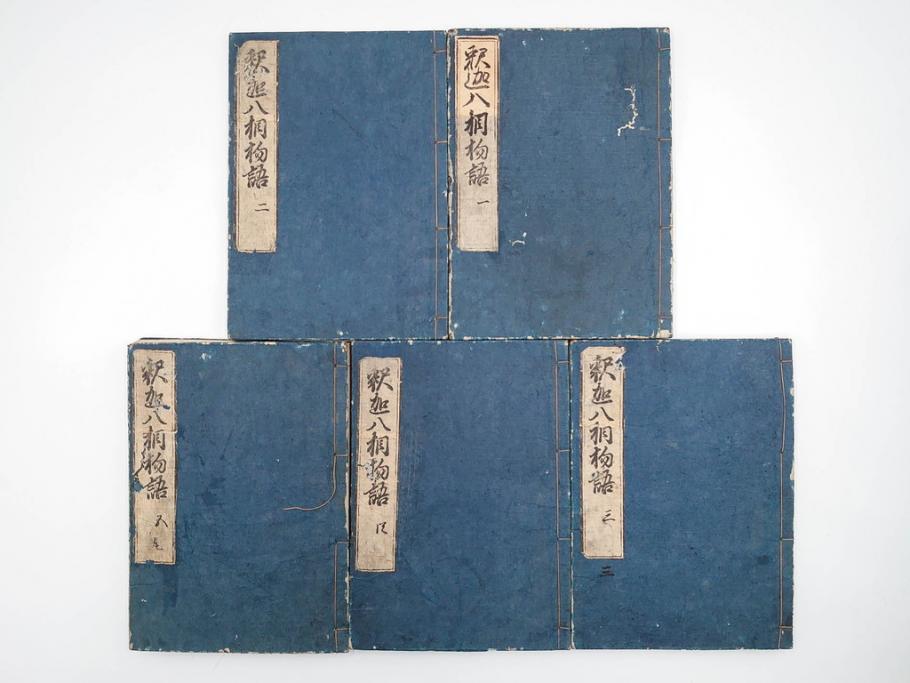 釈迦八相物語 一
釈迦八相物語 二
釈迦八相物語 三
三
釈迦八相物語 四
釈迦八相物語 五